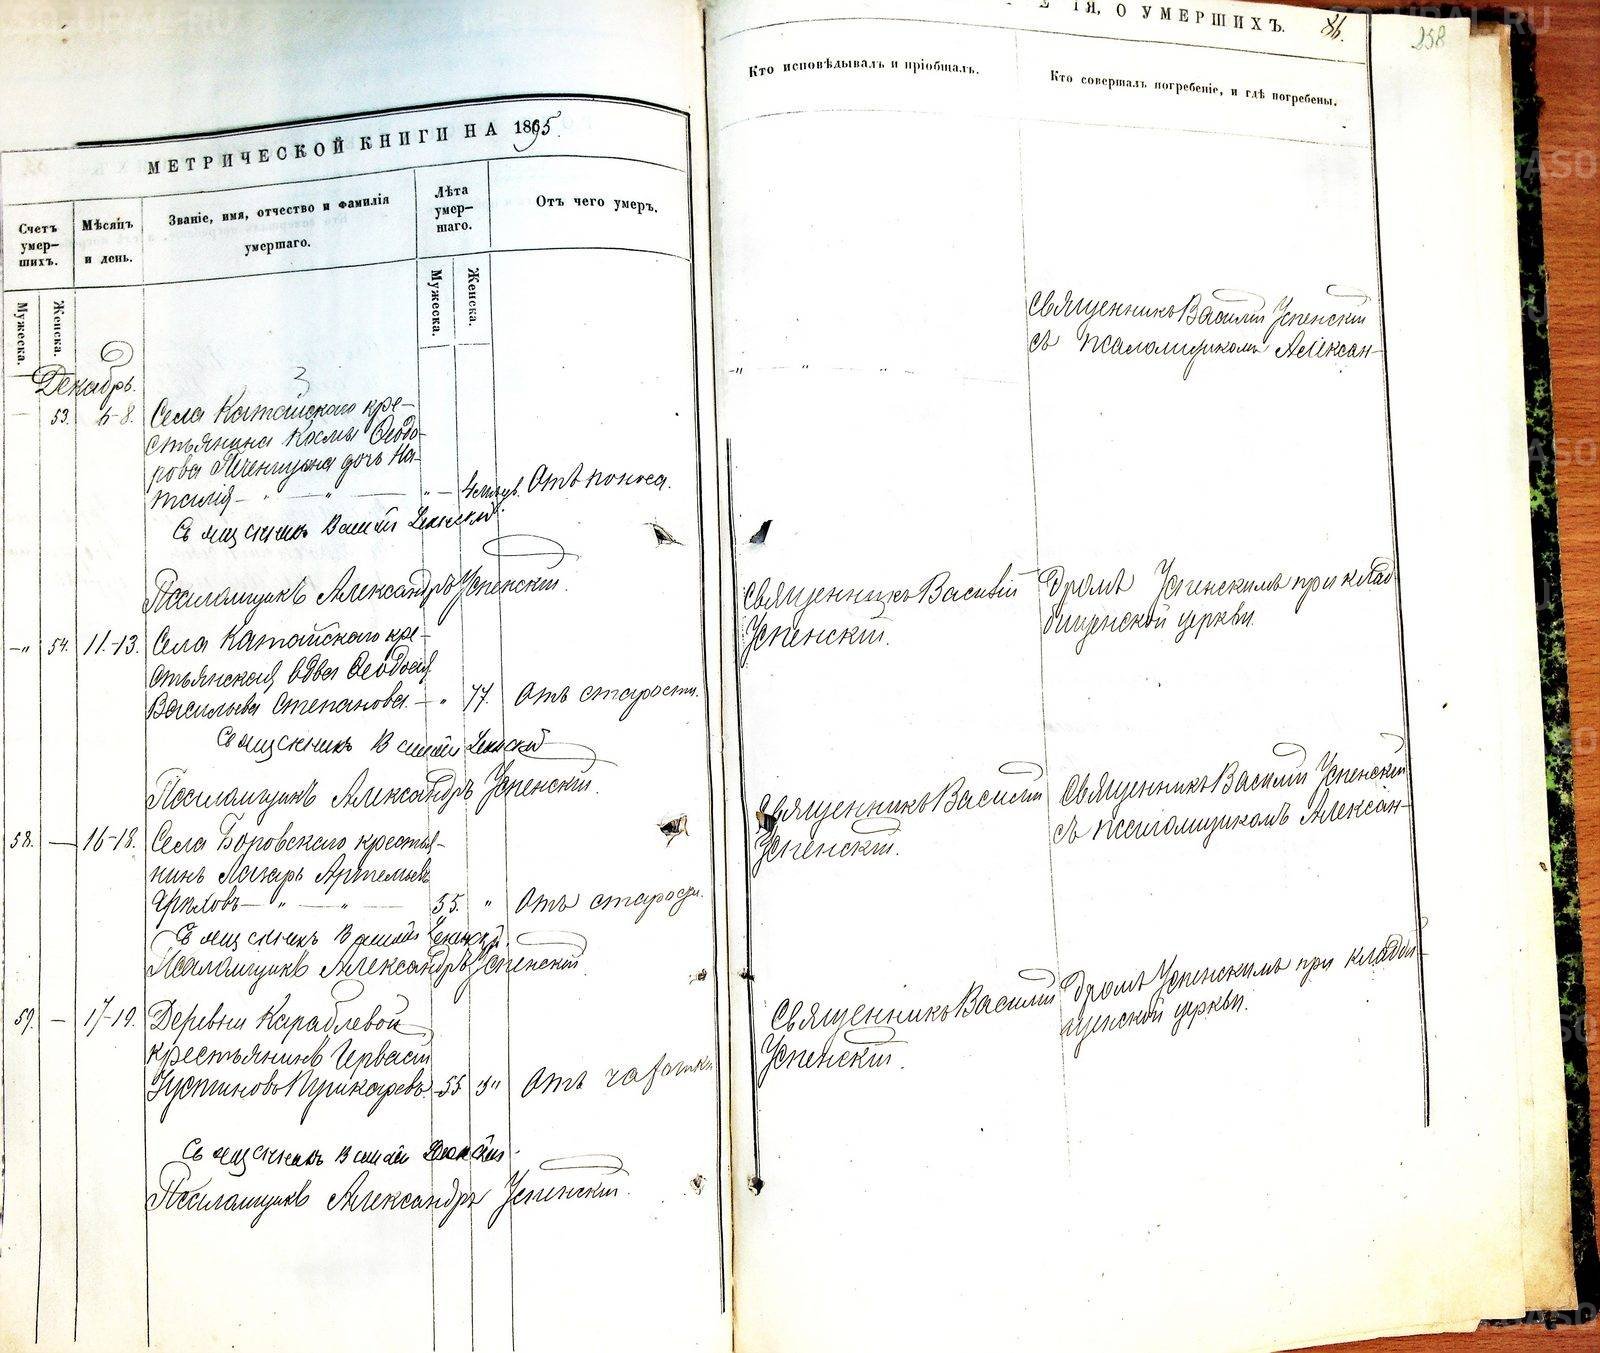 МЕТРИЧЕСКОЙ КНИГИ НА 1895.
Счетъ умер-шихъ.
Мѣсяцъ и день.
Званіе, имя, отчество и фамилія умершаго.
Лѣта умер-шаго.
Отъ чего умеръ.
Мужеска.
Женска.
Мужеска.
Женска.
Декабрь.
53. 6-8. Села Катайскаго кре-
стьянина Космы Ѳеодо-
рова дочь На-
талія 4 Отъ поноса.
Священникъ Василій Успенскій
Псаломщикъ Александръ Успенскій.
54. 11-13. Села Катайскаго кре-
стьянская вдова Ѳеодосія
Васильева Степанова. 77. Отъ старости.
Священникъ Василій Успенскій
Псаломщикъ Александръ Успенскій.
58. 16-18. Села Боровскаго крестья-
нинъ Лазарь Артемьевъ
55. " Отъ старости.
Священникъ Василій Успенскій.
Псаломщикъ Александръ Успенскій
59. 17-19. Деревни Кораблевой
крестьянинъ Гервасій
Іустиновъ 55 Отъ чахотки
Священникъ Василій Успенскій
Псаломщикъ Александръ Успенскій.
ІЯ, О УМЕРШИХЪ.
86.
258
Кто исповѣдывалъ и пріобщалъ.
Кто совершалъ погребеніе, и гдѣ погребены.
Священникъ Василій Успенскій
съ псаломщикомъ Алексан-
Священникъ Василій
Успенскій.
дромъ Успенскимъ при клад-
бищенской церкви.
Священникъ Василій
Успенскій.
Священникъ Василій Успенскій
съ псаломщикомъ Алексан-
Священникъ Василій
Успенскій.
дромъ Успенскимъ при кладби-
щенской церкви.